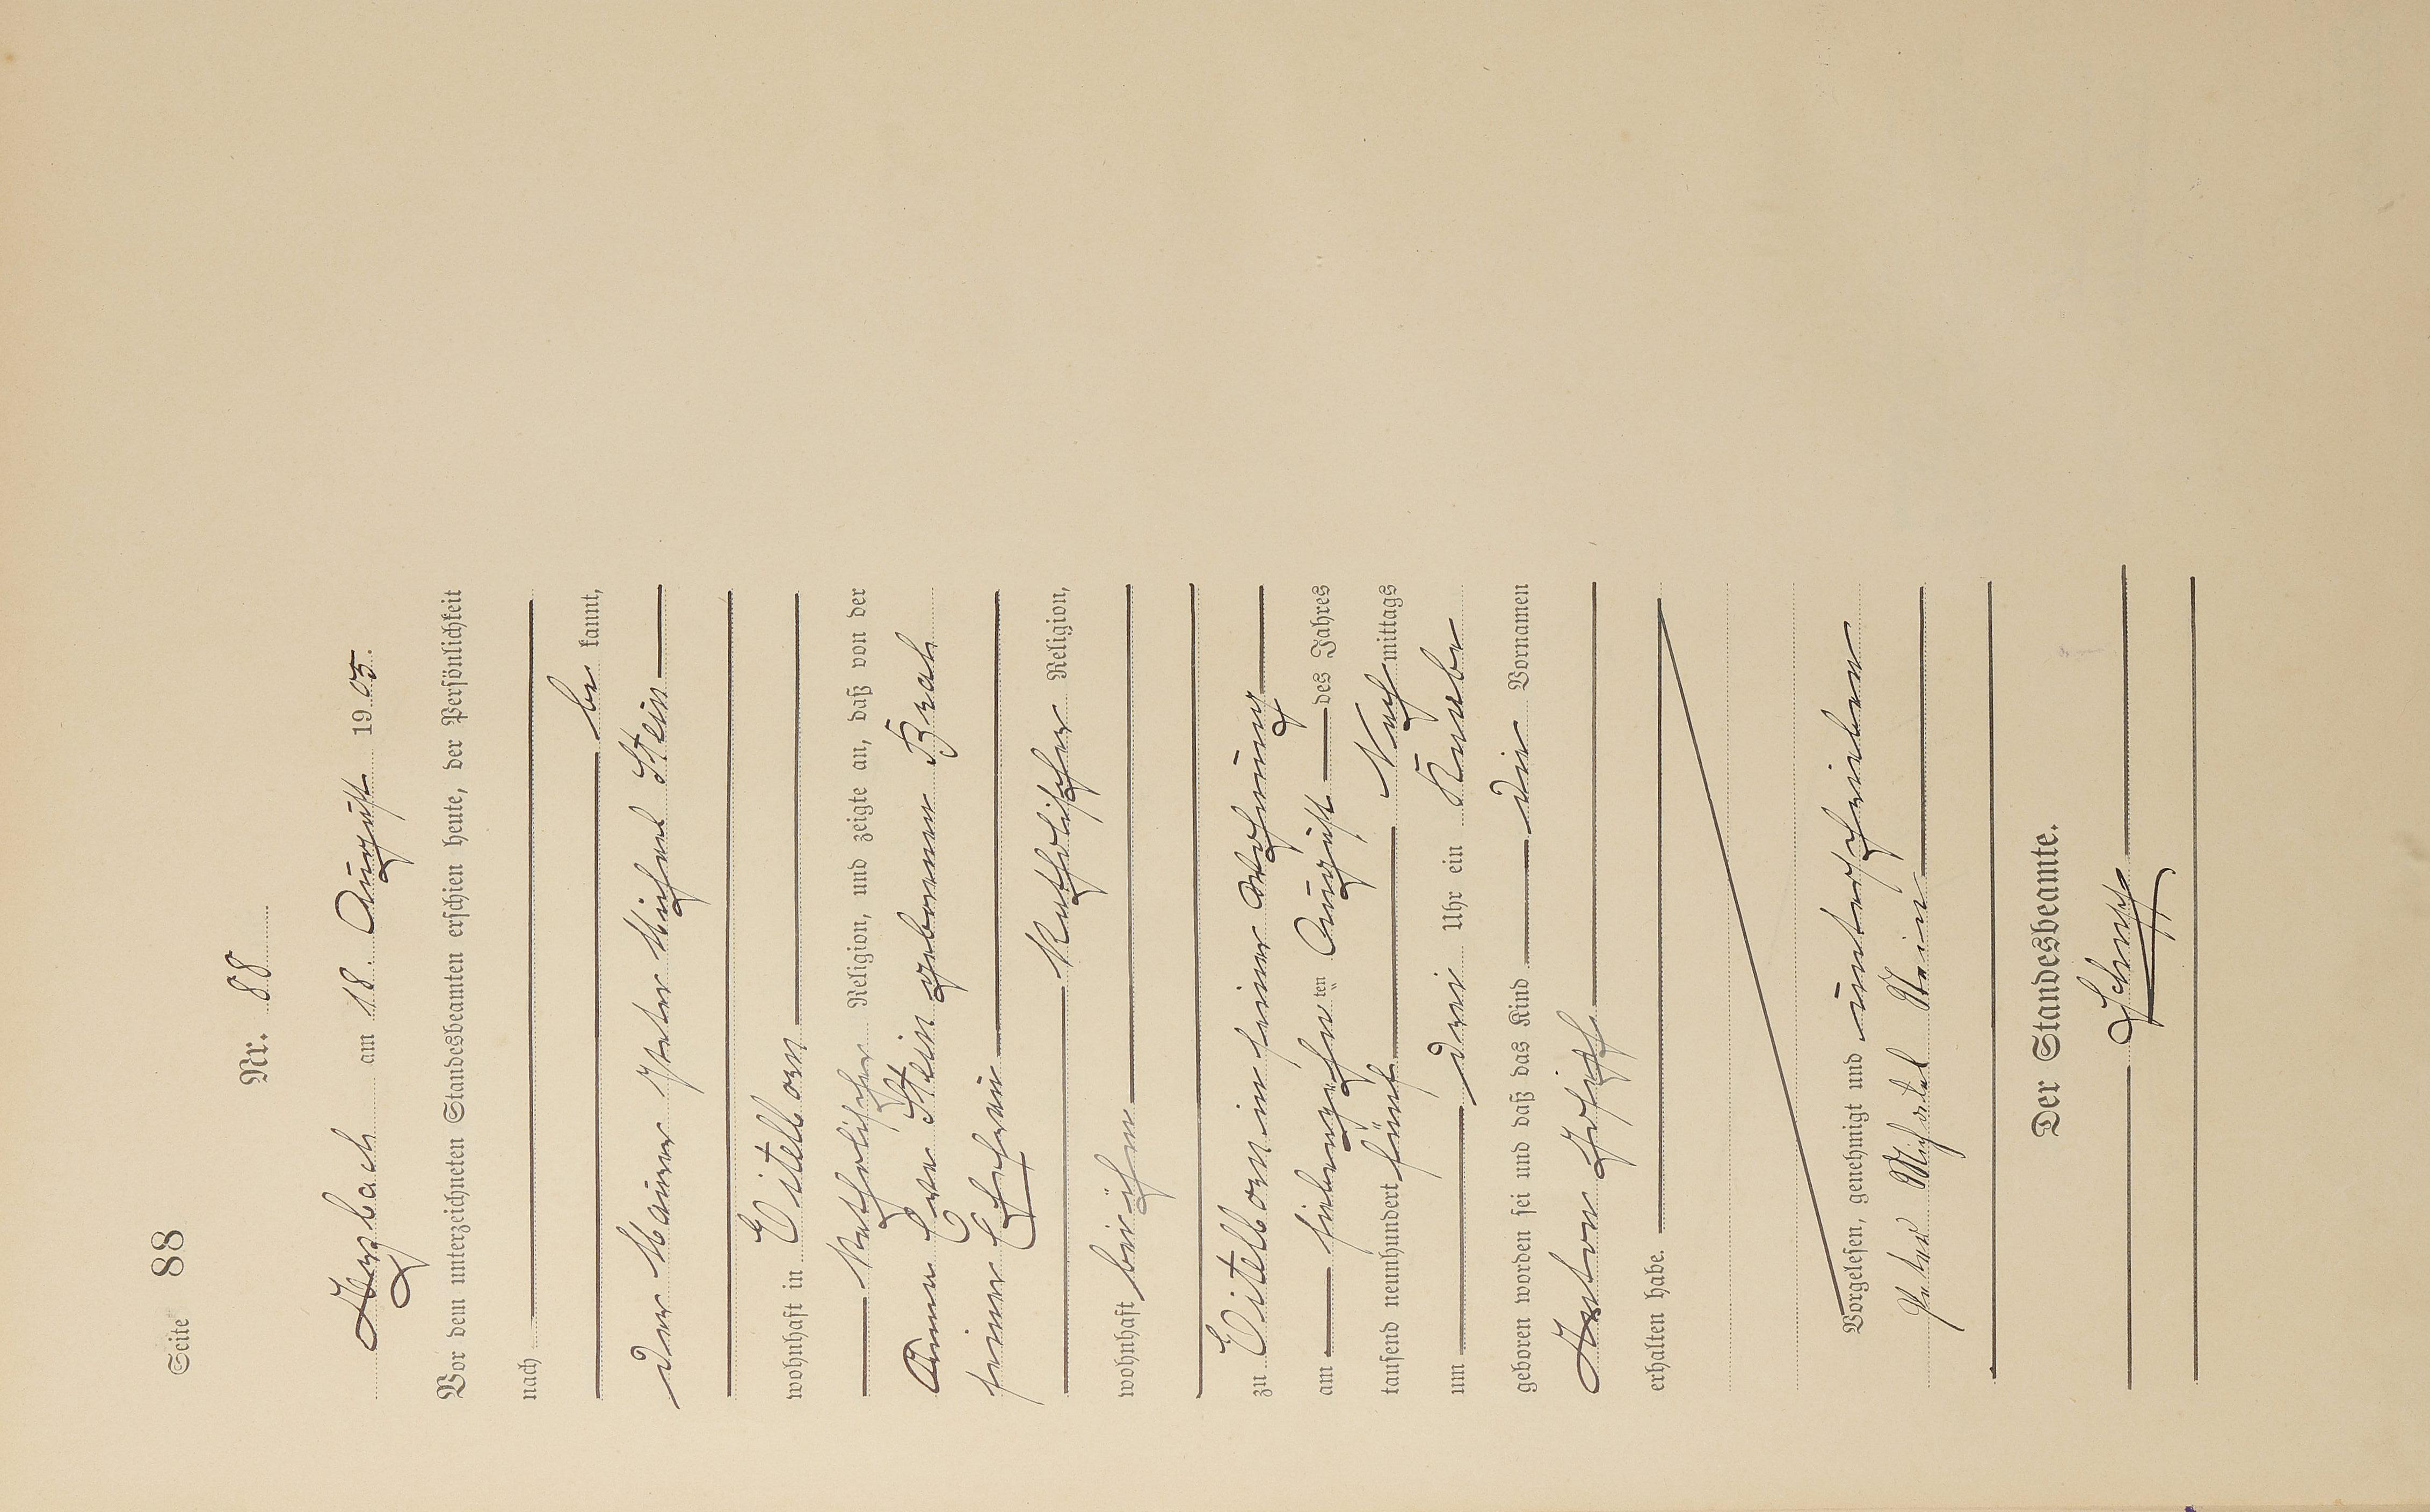 Seite 88
Nr. 88
Arzbach am 18. August 1905.
Vor dem unterzeichneten Standesbeamten erschien heute, der Persönlichkeit
nach
be kannt,
der Maurer Peter Michael Stein
wohnhaft in Eitelborn
katholischer Religion, und zeigte an, daß von der
Anna Eva Stein geborenen Brach
seiner Ehefrau
katholischer Religion,
wohnhaft bei ihm
zu Eitelborn in seiner Wohnung
am siebenzehn ten August des Jahres
tausend neunhundert fünf Nach mittags
um drei Uhr ein Knabe
geboren worden sei und daß das Kind die Vornamen
Anton Joseph
erhalten habe.
Vorgelesen, genehmigt und unterschrieben
Peter Michael Stein
Der Standesbeamte.